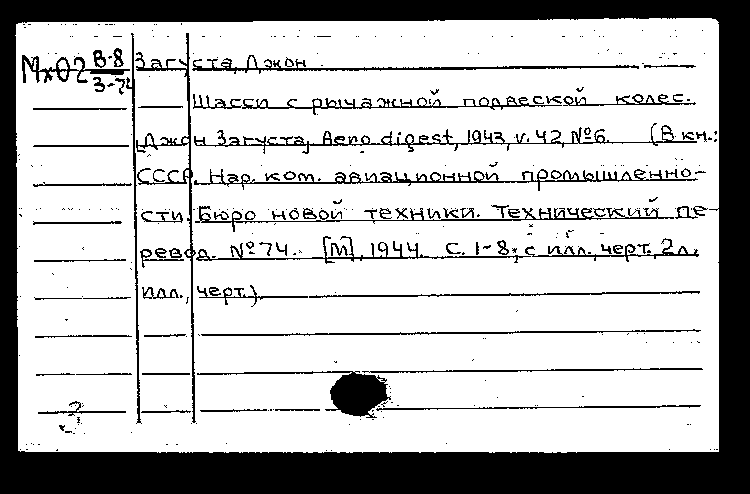 Мх02 В-8 Загуста, Джон
3-72
Шасси с рычажной подвеской колес.
[Джон Загуста, Aero digest, 1943, v. 42, №6. (В кн.:
СССР. Нар. ком. авиационной промышленно-
сти. Бюро новой техники. Технический пе-
ревод. №74. [М], 1944. С. 1-8; с илл., черт., 2 л.
илл., черт.).
3